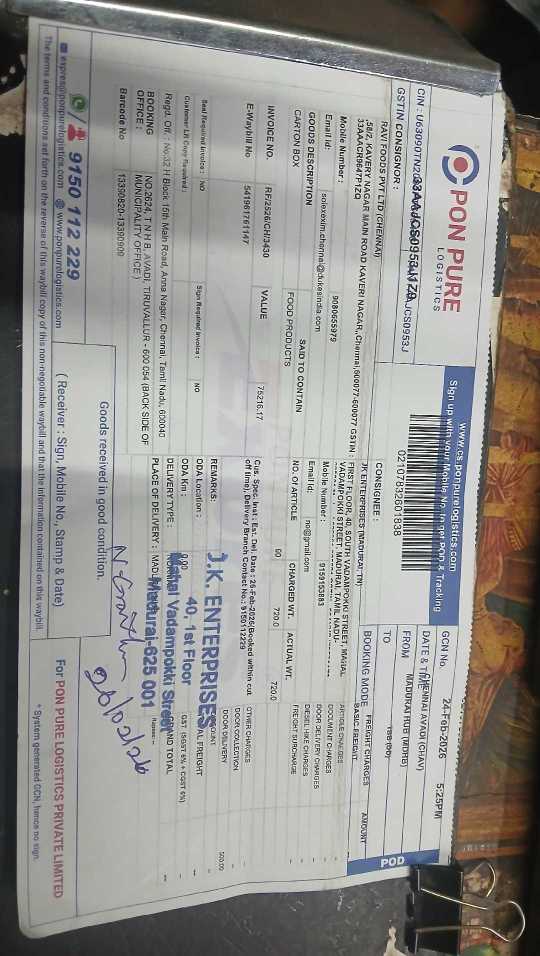 PON PURE
LOGISTICS
www.cs.ponpurelogistics.com
Sign up with your Mobile No. to get POD & Tracking
02107832601838
GCN No.
24-Feb-2026 5:25PM
DATE & TIME
FROM CHENNAI AVADI (CHAV)
TO MADURAI HUB (MDRB)
BOOKING MODE
POD
GSTIN CONSIGNOR : 33AAJCS0953J1Z9
RAVI FOODS PVT LTD (CHENNAI)
,58/2, KAVERY NAGAR MAIN ROAD KAVERI NAGAR,,Chennai,600077-600077 GSTIN :
33AAACR9647P1ZQ
Mobile Number : 9080655979
Email id: solexexim.chennai@dukesindia.com
CONSIGNEE :
JK ENTERPRISES (MADURAI, TN)
FIRST FLOOR, 40, SOUTH VADAMPOKKI STREET, MAHAL
VADAMPOKKI STREET, MADURAI, TAMIL NADU-
Mobile Number : 9159153883
Email id: no@gmail.com
FREIGHT CHARGES AMOUNT
BASIC FREIGHT
ARTICLE CHARGES -
DOCUMENT CHARGES -
DOOR DELIVERY CHARGES -
DIESEL HIKE CHARGES -
FREIGHT SURCHARGE -
OTHER CHARGES -
DOOR COLLECTION -
DOOR DELIVERY 500.00
GOODS DESCRIPTION SAID TO CONTAIN NO. OF ARTICLE CHARGED WT. ACTUAL WT.
CARTON BOX FOOD PRODUCTS 90 720.0 720.0
INVOICE NO. RF/2526/CH/3430 VALUE 75216.17
E-Waybill No 541961761147
Cus. Spec. Inst : Est. Del. Date : 26-Feb-2026(Booked within cut
off time) , Delivery Branch Contact No.: 9150112229
Seal Required Invoice : NO Sign Required Invoice : NO
Customer LR Copy Required :
REMARKS:
ODA Location :
ODA Km : 0.00
DELIVERY TYPE :
PLACE OF DELIVERY :
GST (SGST 6% + CGST 6%) --
GRAND TOTAL --
J.K. ENTERPRISES
40, 1st Floor
Mahal Vadampokki Street
Madurai-625 001
Regd. Off. : No:32 H Block 15th Main Road, Anna Nagar, Chennai, Tamil Nadu, 600040
BOOKING OFFICE : NO.2624, T N H B, AVADI, TIRUVALLUR - 600 054 (BACK SIDE OF
MUNICIPALITY OFFICE )
Barcode No 13390820-13390909
Goods received in good condition.
26/02/26
( Receiver : Sign, Mobile No., Stamp & Date)
For PON PURE LOGISTICS PRIVATE LIMITED
* System generated GCN, hence no sign.
9150 112 229
expres@ponpurelogistics.com www.ponpurelogistics.com
The terms and conditions set forth on the reverse of this waybill copy of this non-negotiable waybill and that the information contained on this waybill.